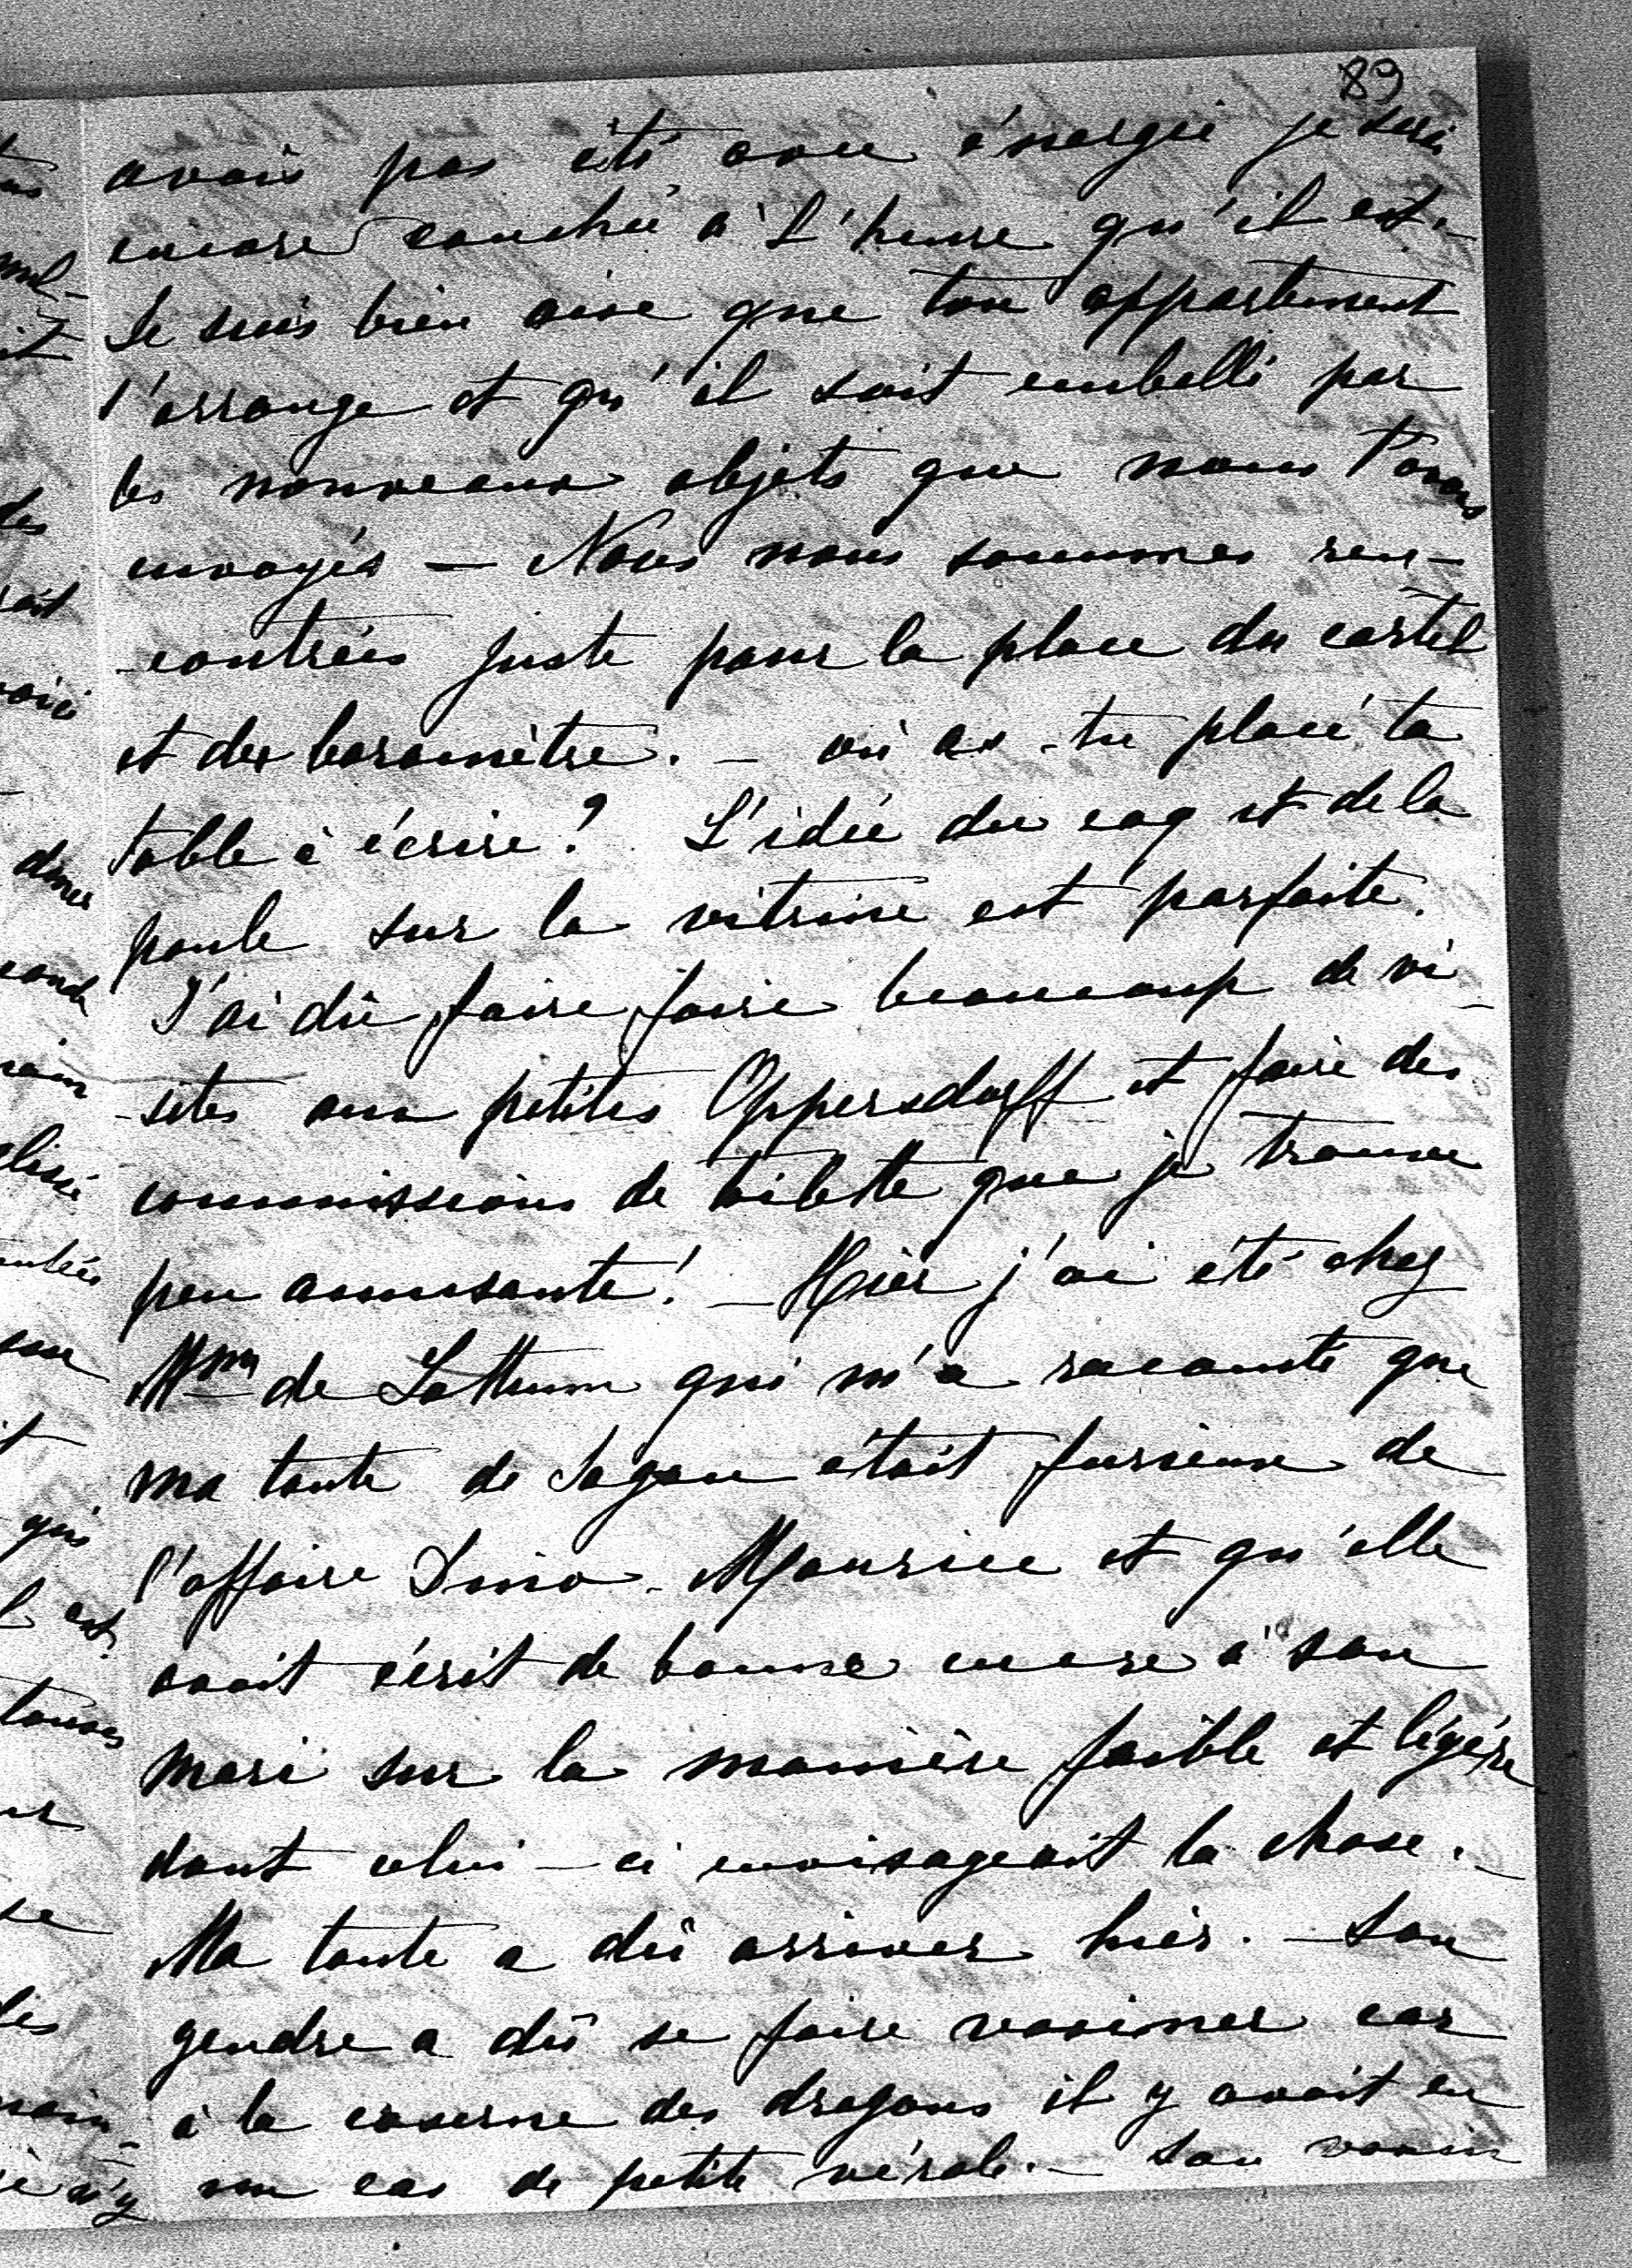 89
avais pas été avec énergie je serais
encore couchée à L'heure qu'il est. _
Je suis bien aise que ton appartement
s'arrange et qu'il soit embelli par
les nouveaux objets que nous t'avons
envoyés — Nous nous sommes ren-
-contrées juste pour la place du cartel
et du baromètre. _ où as-tu placé ta
table à écrire? L'idée du coq et de la
poule sur la vitrine est parfaite.
J'ai dû faire faire beaucoup de vi-
-sites aux petites Oppersdorff et faire des
commissions de toilette que je trouve
peu amusante! _ Hier j'ai été chez
Mme de Lottum qui m'a raconté que
ma tante de Sagan était furieuse de
l'affaire Dino-Maurice et qu'elle
avait écrit de bonne encre à son
mari sur la manière faible et légère
dont celui-ci envisageait la chose. _
Ma tante a dû arriver hier. _ Son
gendre a dû se faire vacciner car
à la caserne des dragons il y avait eu
un cas de petite vérole. _ Son vaccin